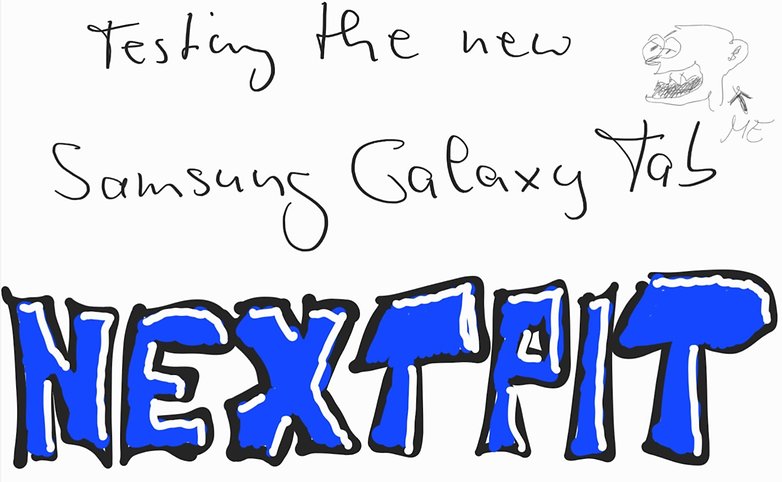 Testing the new
ME
Samsung Galaxy Tab
NEXTPIT